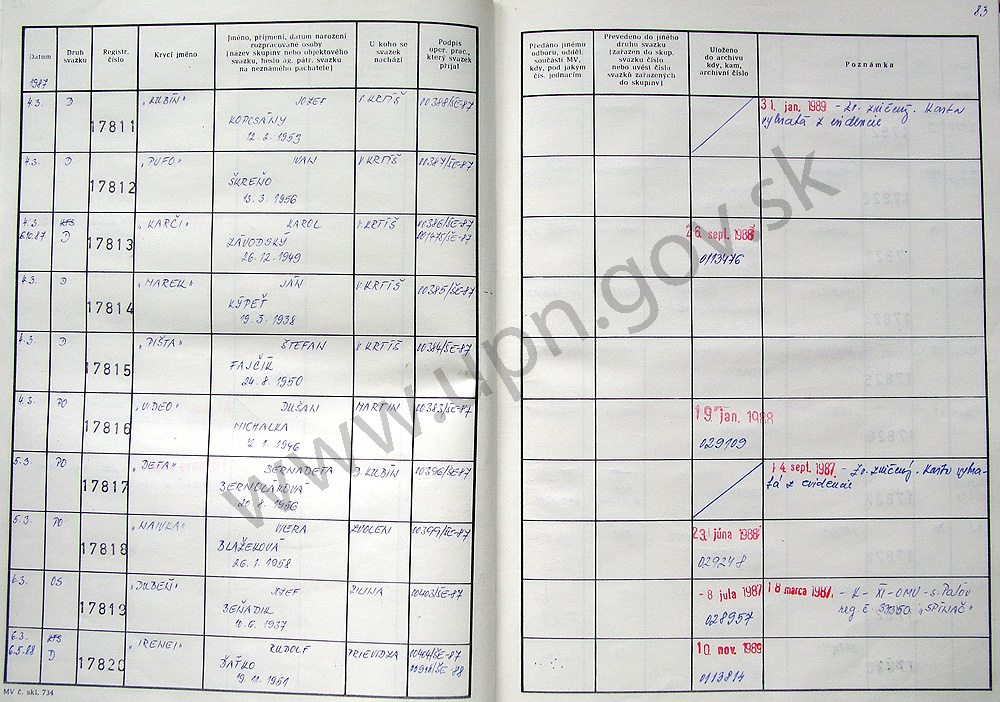 83
Datum
Druh svazku
Registr. číslo
Krycí jméno
Jméno, příjmení, datum narození
rozpracované osoby
(název skupiny nebo objektového
svazku, heslo ag. pátr. svazku
na neznámého pachatele)
U koho se
svazek
nachází
Podpis
oper. prac.,
který svazek
přijal
Předáno jinému
odboru, odděl.
součásti MV,
kdy, pod jakým
čís. jednacím
Převedeno do jiného
druhu svazku
(zařazen do skup.
svazku číslo
nebo uvést čísla
svazků zařazených
do skupiny)
Uloženo
do archivu
kdy, kam,
archivní číslo
Poznámka
1987
4.3. D 17811 "KUBÍN" JOZEF V. KRTÍŠ 00388/ŠE-87
KOPCSÁNY
12. 2. 1953
31. jan. 1989 - Zv. zničený. Karta
vybratá z evidencie
4.3. D 17812 "PUFO" IVAN V. KRTÍŠ 00387/ŠE-87
ŠKREŇO
13. 3. 1956
4.3. KTS 17813 "KARČI" KAROL V. KRTÍŠ 00386/ŠE-87
6.10.87 D 001475/ŠE-87
ZÁVODSKÝ
26. 12. 1949
26. sept. 1988
0113476
4.3. D 17814 "MAREK" JÁN V. KRTÍŠ 00385/ŠE-87
KÝPEŤ
19. 3. 1938
4.3. D 17815 "PIŠTA" ŠTEFAN V. KRTÍŠ 00384/ŠE-87
FAJČÍK
24. 8. 1950
4.3. PO 17816 "VIDEO" DUŠAN MARTIN 00383/ŠE-87
MICHALKA
1. 1946
19. jan. 1988
029109
5.3. PO 17817 "DETA" BERNADETA D. KUBÍN 00396/ŠE-87
BERNOLÁKOVÁ
20. 8. 1956
14. sept. 1987 - Zv. zničený. Karta vybra-
tá z evidencie
5.3. PO 17818 "NAIVKA" VIERA ZVOLEN 00399/ŠE-87
BLAŽEKOVÁ
26. 1. 1958
23. júna 1988
029248
6.3. OS 17819 "DUBEŇ" JOZEF ŽILINA 00403/ŠE-87
BEŇADIK
10. 6. 1937
- 8. júla 1987
028957
18. marca 1987. - K - XI - OMV - s. Paľov
reg. č. "SPINAČ"
6.3. KTS 17820 "IRENEJ" RUDOLF PRIEVIDZA 00404/ŠE-87
6.5.88 D 00918/ŠE-88
ĎAŤKO
19. 11. 1951
10. nov. 1989
0113814
MV č. skl. 734
www.upn.gov.sk